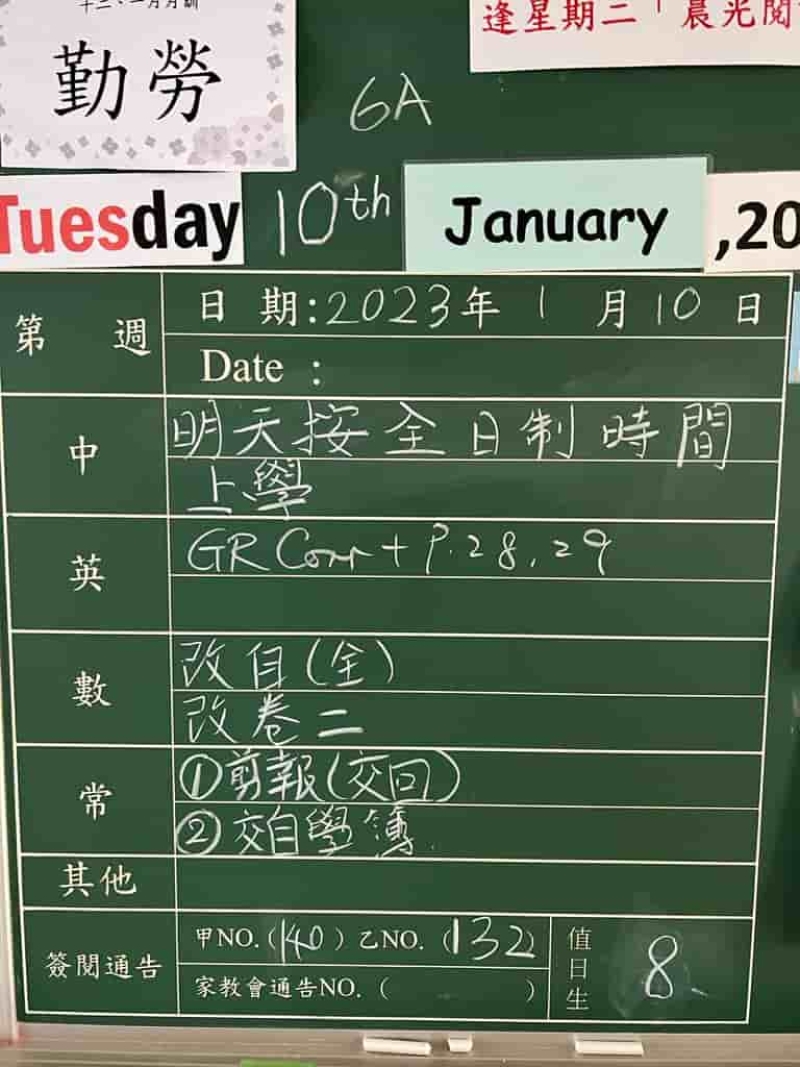 十二、一月月訓
勤勞
逢星期二「晨光閱
6A
Tuesday 10th January ,20
第 週
日 期:2023年 1 月 10 日
Date :
中
明天按全日制時間
上學
英
GR Corr + P.28,29
數
改自(全)
改卷二
常
①剪報(交回)
②交自學簿
其他
簽閱通告
甲NO.(140) 乙NO.(132)
家教會通告NO.( )
值日生
8